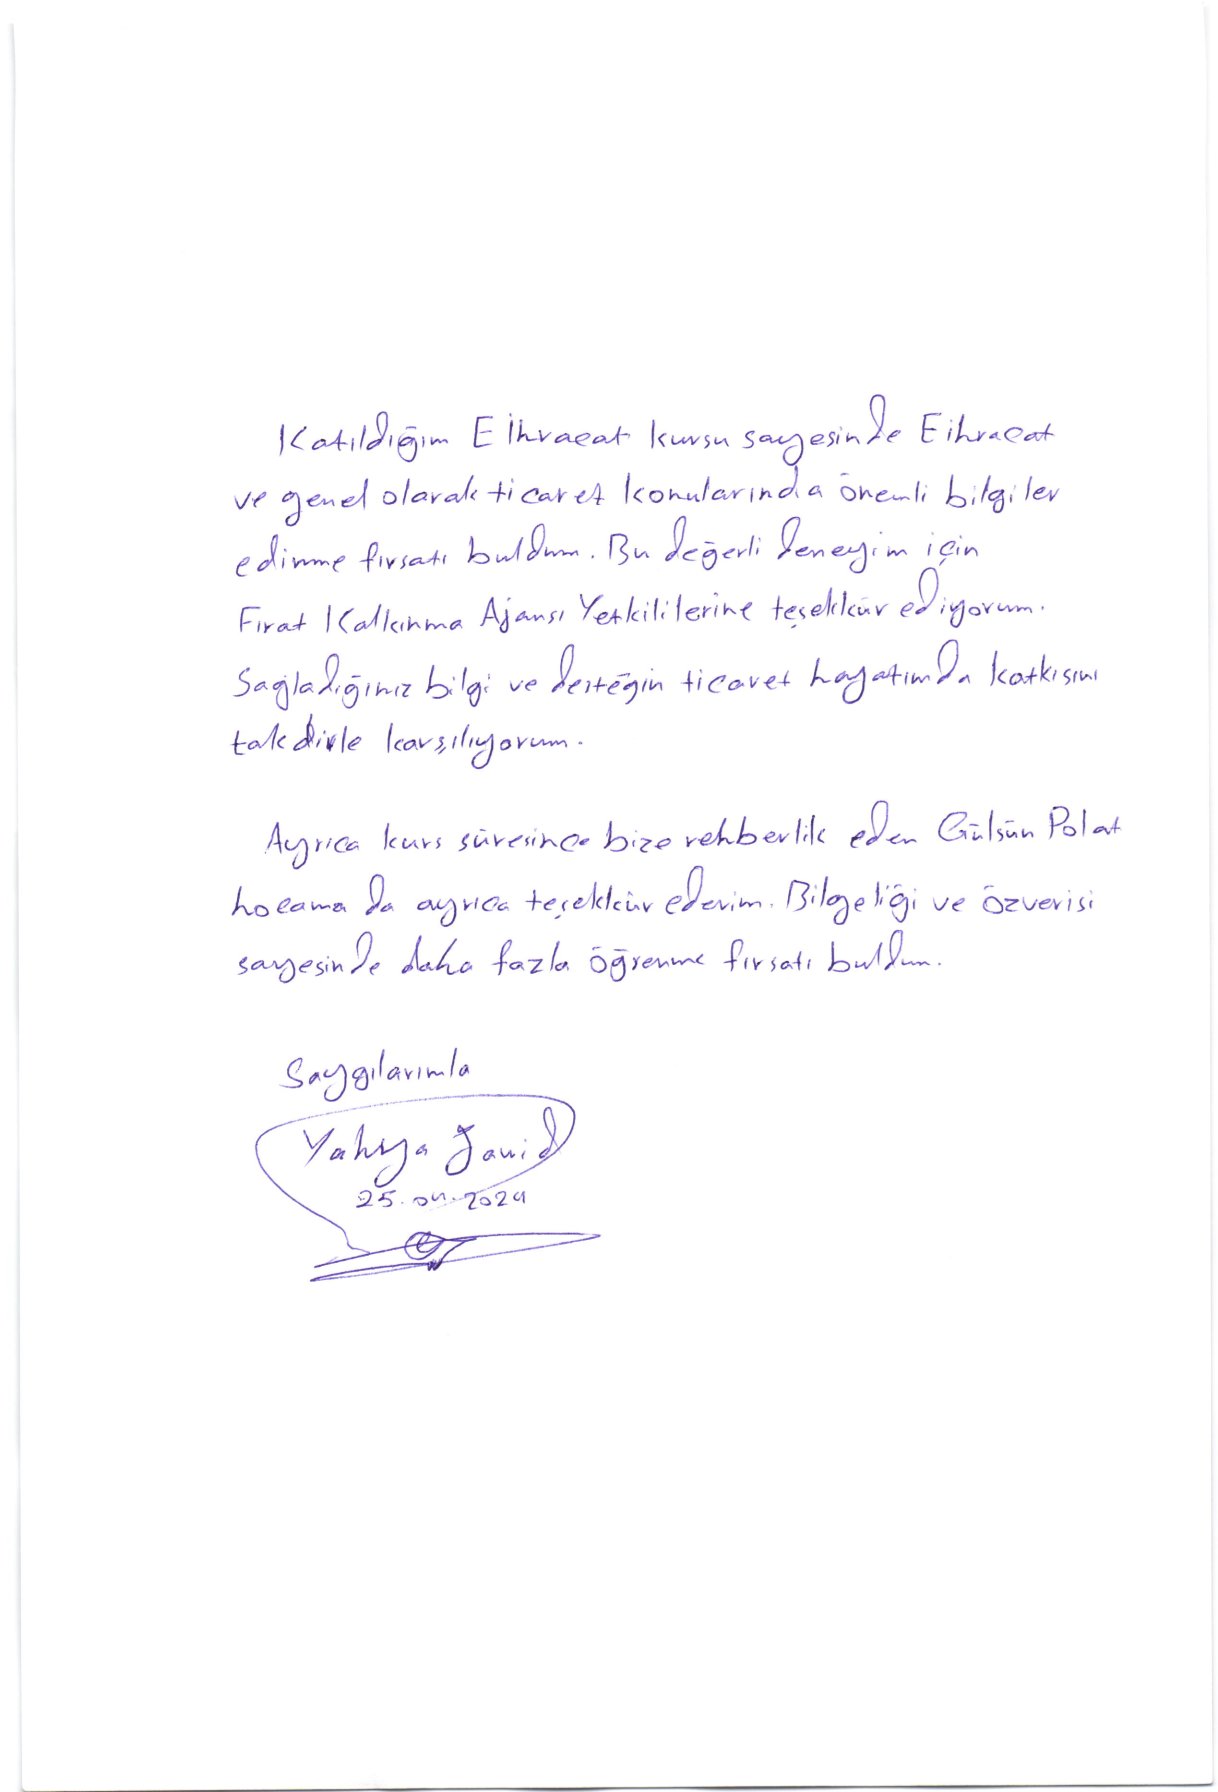 Katıldığım E İhracat kursu sayesinde E ihracat
ve genel olarak ticaret konularında önemli bilgiler
edinme fırsatı buldum. Bu değerli deneyim için
Fırat Kalkınma Ajansı Yetkililerine teşekkür ediyorum.
Sağladığınız bilgi ve desteğin ticaret hayatımda katkısını
takdirle karşılıyorum.
Ayrıca kurs süresince bize rehberlik eden Gülsün Polat
hocama da ayrıca teşekkür ederim. Bilgeliği ve özverisi
sayesinde daha fazla öğrenme fırsatı buldum.
Saygılarımla
Yahya Javid
25.04.2024